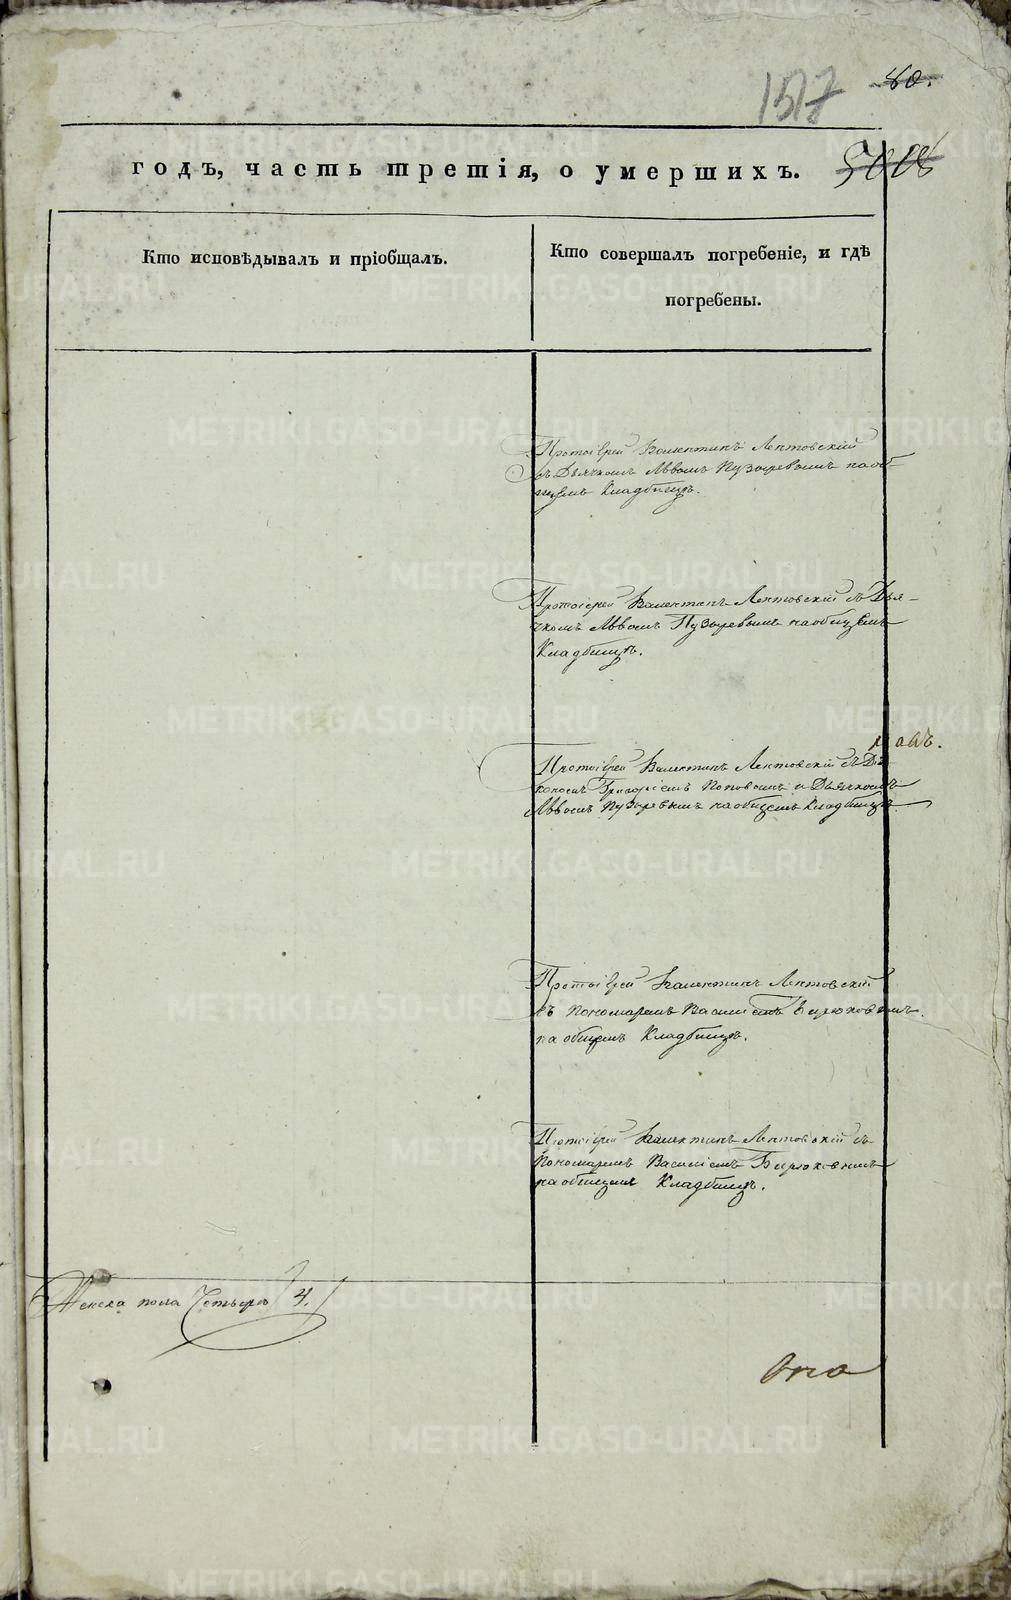 1517 80.
годъ, часть третія, о умершихъ.
Кто исповѣдывалъ и пріобщалъ.
Кто совершалъ погребеніе, и гдѣ
погребены.
Протоіерей Валентинъ Лептовскій
съ Дьячкомъ Львомъ Пузыревымъ на об-
щемъ Кладбищѣ.
Протоіерей Валентинъ Лептовскій съ Дья-
чкомъ Львомъ Пузыревымъ на общемъ
Кладбищѣ.
Протоіерей Валентинъ Лептовскій съ Діа-
кономъ Григоріемъ Поповымъ и Дьячкомъ
Львомъ Пузыревымъ на общемъ Кладбищѣ
Протоіерей Валентинъ Лептовскій
съ Пономаремъ Василіемъ Бирюковымъ
на общемъ Кладбищѣ.
Протоіерей Валентинъ Лептовскій съ
Пономаремъ Василіемъ Бирюковымъ
на общемъ Кладбищѣ.
Женска пола Четыре 4.
METRIKI.GASO-URAL.RU